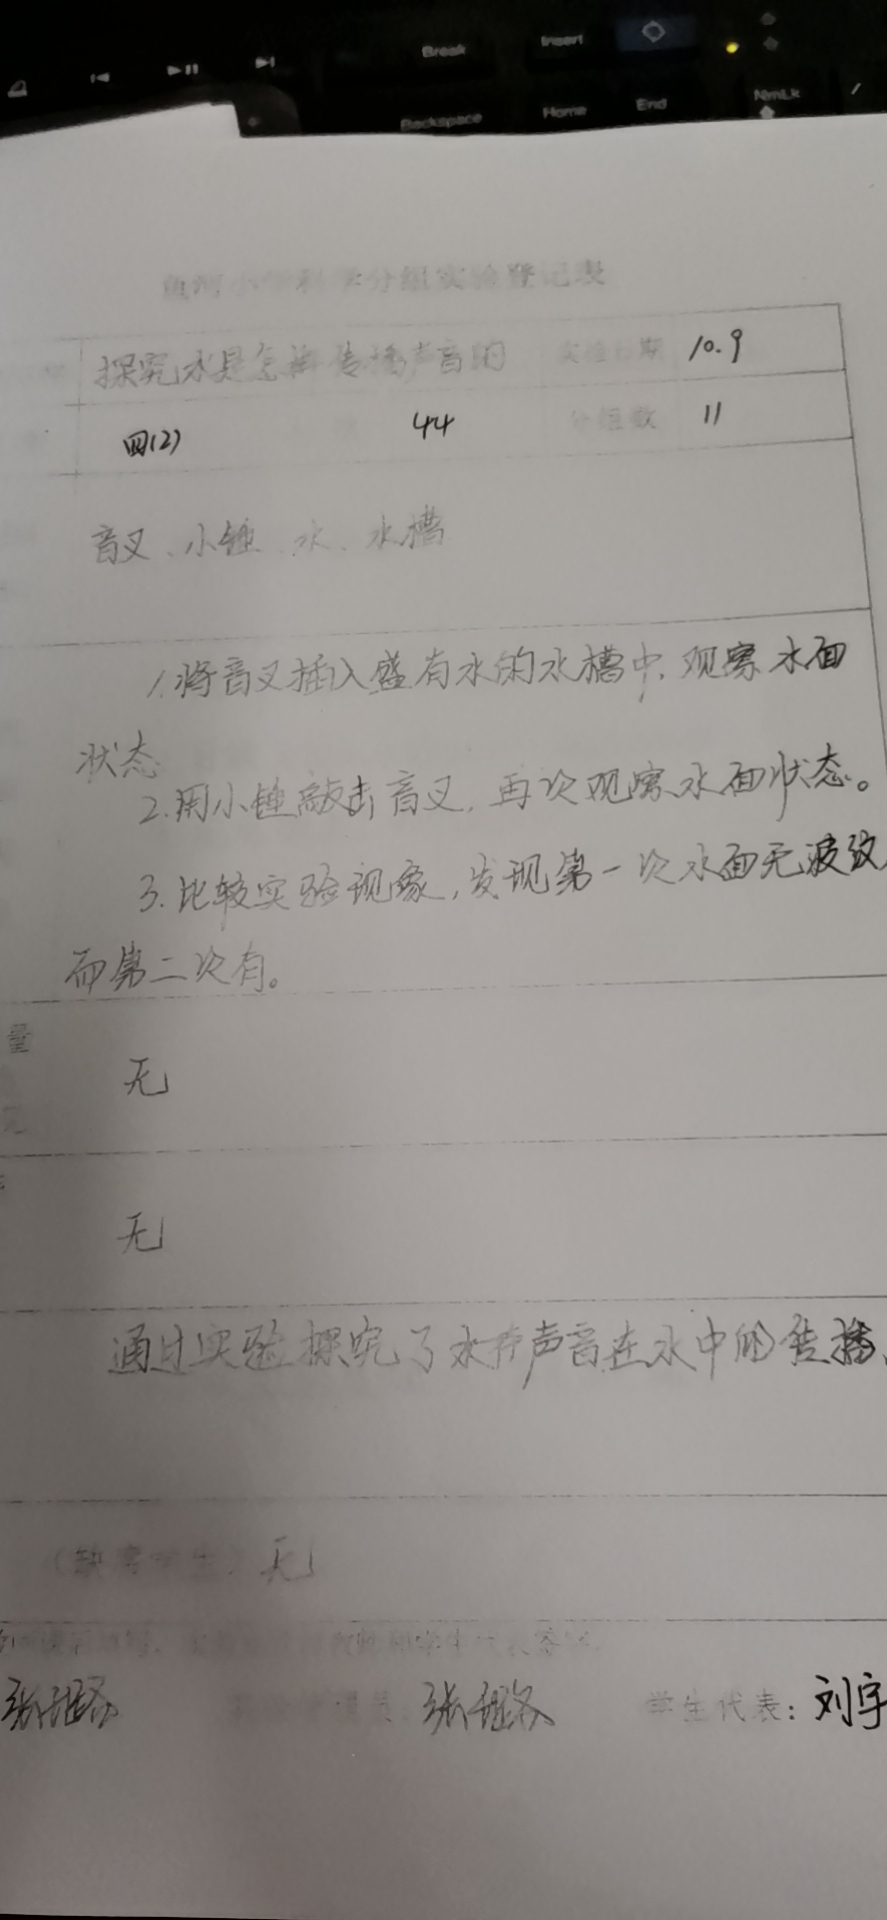 Break
Insert
Backspace
Home
End
NmLk
小学科学分组实验登记表
探究水是怎样传播声音的 实验日期 10.9
四(2) 44 分组数 11
音叉、小锤、水、水槽
1.将音叉插入盛有水的水槽中,观察水面
状态
2.用小锤敲击音叉,再次观察水面状态。
3.比较实验现象,发现第一次水面无波纹
而第二次有。
量
无
无
通过实验探究了水存声音在水中的传播
(缺席学生)无
学生代表:刘宇